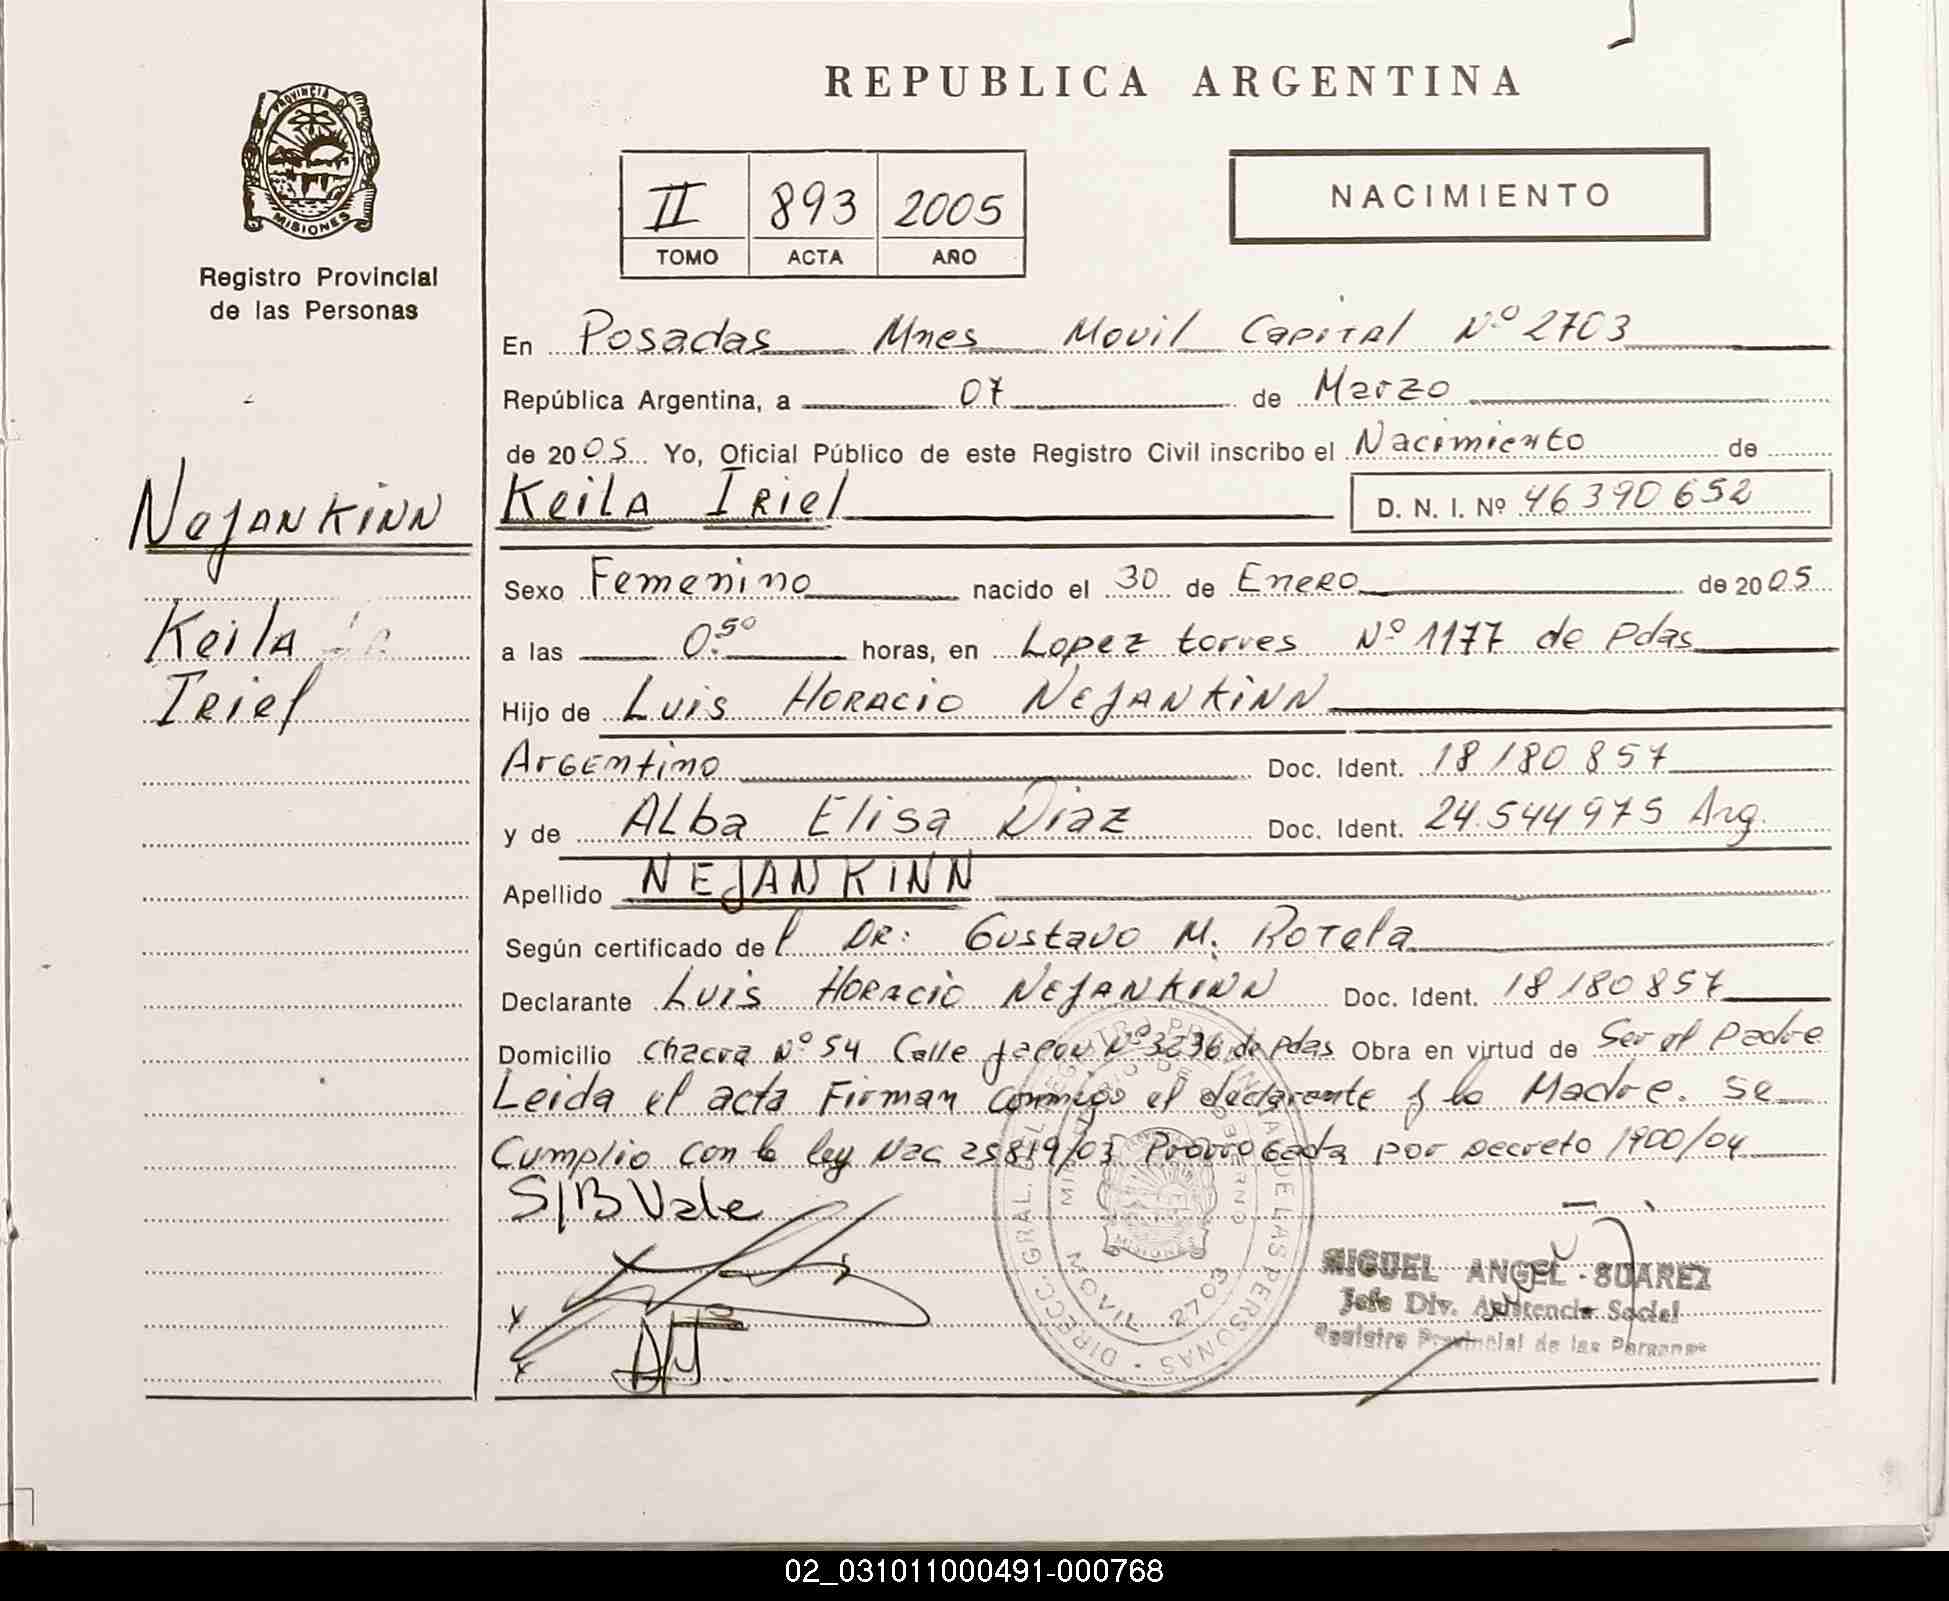 REPUBLICA ARGENTINA
PROVINCIA DE
MISIONES
Registro Provincial
de las Personas
II 893 2005
TOMO ACTA AÑO
NACIMIENTO
En Posadas Mnes Movil Capital Nº 2703
República Argentina, a 07 de Marzo
de 2005 Yo, Oficial Público de este Registro Civil inscribo el Nacimiento de
Nejankinn
Keila Iriel D. N. I. Nº 46390652
Sexo Femenino nacido el 30 de Enero de 2005
Keila
Iriel
a las 0.50 horas, en Lopez torres Nº 1177 de Pdas
Hijo de Luis Horacio Nejankinn
Argentino Doc. Ident. 18180857
y de Alba Elisa Diaz Doc. Ident. 24.544975 Arg.
Apellido NEJANKINN
Según certificado del DR: Gustavo M. Rotela
Declarante Luis Horacio Nejankinn Doc. Ident. 18180857
Domicilio Chacra Nº 54 Calle Japon Nº 3236 de Pdas Obra en virtud de Ser el Padre
Leida el acta Firman conmigo el declarante y la Madre. Se
Cumplio con la ley Nac 25819/03 Prorrogada por Decreto 1900/04
S/B Vale
DIRECC. GRAL. DEL REGISTRO PROVINCIAL DE LAS PERSONAS
MOVIL 2703
MISIONES
MIGUEL ANGEL SUAREZ
Jefe Div. Asistencia Social
Registro Provincial de las Personas
02_031011000491-000768